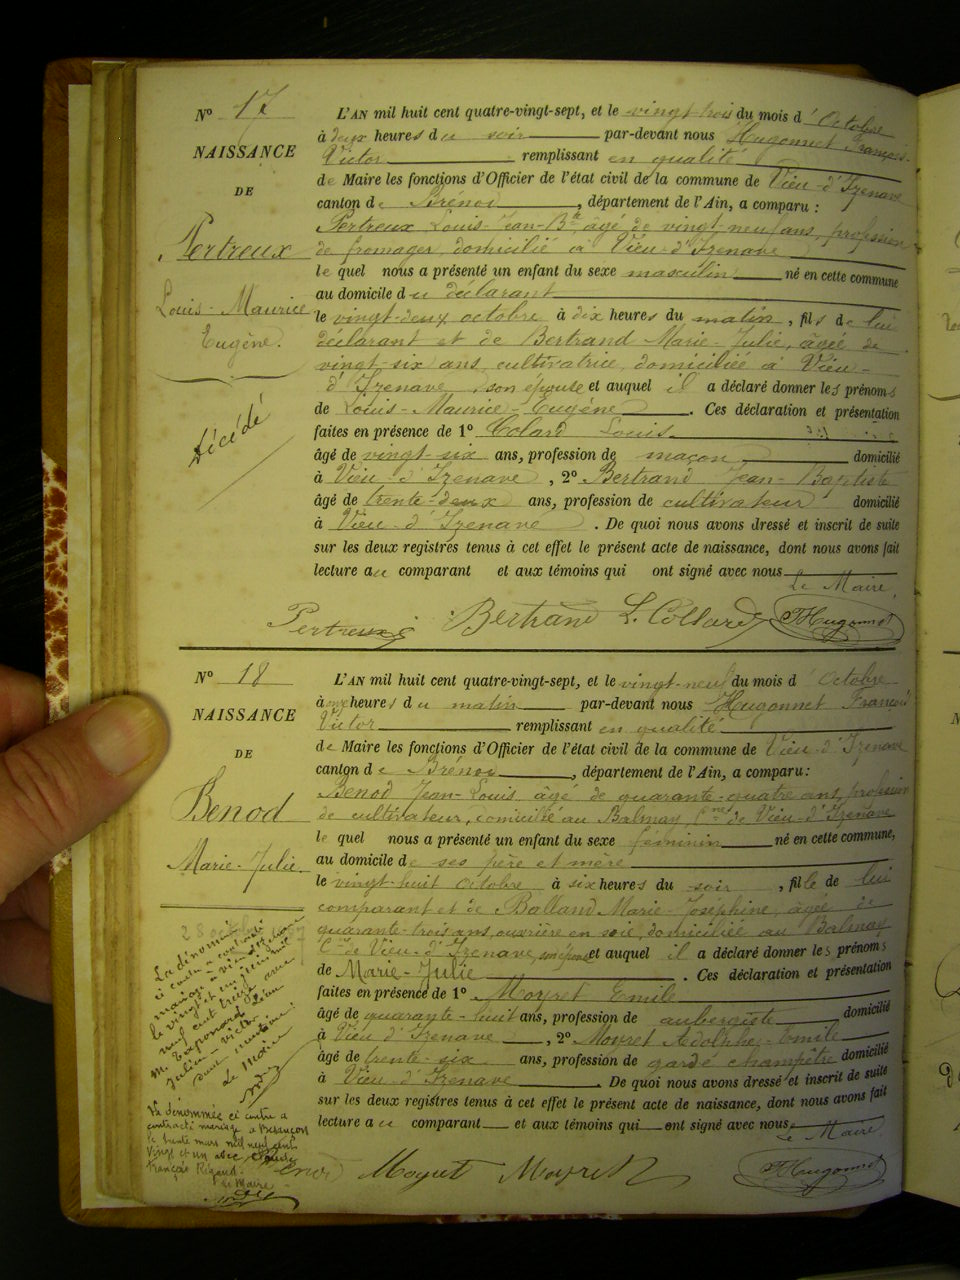 N° 17
NAISSANCE
DE
Pertreux
Louis-Maurice
Eugène.
décédé
L'AN mil huit cent quatre-vingt-sept, et le vingt trois du mois d'Octobre
à deux heures du soir par-devant nous Hugonnet François
Victor remplissant en qualité
de Maire les fonctions d'Officier de l'état civil de la commune de Vieu-d'Izenave
canton de Brénod, département de l'Ain, a comparu :
Pertreux Louis-Jean-Bte âgé de vingt neuf ans, profession
de fromager, domicilié à Vieu-d'Izenave
lequel nous a présenté un enfant du sexe masculin né en cette commune
au domicile du déclarant
le vingt-deux octobre à dix heures du matin, fils de lui
déclarant et de Bertrand Marie-Julie, âgée de
vingt-six ans, cultivatrice, domiciliée à Vieu-
d'Izenave, son épouse et auquel il a déclaré donner les prénoms
de Louis-Maurice-Eugène. Ces déclaration et présentation
faites en présence de 1° Colard Louis
âgé de vingt-six ans, profession de maçon domicilié
à Vieu-d'Izenave, 2° Bertrand Jean-Baptiste
âgé de trente-deux ans, profession de cultivateur domicilié
à Vieu-d'Izenave. De quoi nous avons dressé et inscrit de suite
sur les deux registres tenus à cet effet le présent acte de naissance, dont nous avons fait
lecture au comparant et aux témoins qui ont signé avec nous
Le Maire,
Pertreux Bertrand L. Collard Hugonnet
N° 18
NAISSANCE
DE
Benod
Marie-Julie
L'AN mil huit cent quatre-vingt-sept, et le vingt-neuf du mois d'Octobre
à onze heures du matin par-devant nous Hugonnet François
Victor remplissant en qualité
de Maire les fonctions d'Officier de l'état civil de la commune de Vieu-d'Izenave
canton de Brénod, département de l'Ain, a comparu :
Benod Jean-Louis, âgé de quarante-quatre ans, profession
de cultivateur, domicilié au Balmay, Cne de Vieu-d'Izenave
lequel nous a présenté un enfant du sexe féminin né en cette commune,
au domicile de ses père et mère
le vingt-huit octobre à six heures du soir, fille de lui
comparant et de Balland Marie-Joséphine, âgée de
quarante-trois ans, ouvrière en soie, domiciliée au Balmay
Cne de Vieu-d'Izenave, son épouse et auquel il a déclaré donner les prénoms
de Marie-Julie. Ces déclaration et présentation
faites en présence de 1° Moyret Emile
âgé de quarante-huit ans, profession de aubergiste domicilié
à Vieu d'Izenave, 2° Moyret Adolphe-Emile
âgé de trente-six ans, profession de garde champêtre domicilié
à Vieu-d'Izenave. De quoi nous avons dressé et inscrit de suite
sur les deux registres tenus à cet effet le présent acte de naissance, dont nous avons fait
lecture au comparant et aux témoins qui ont signé avec nous
Le Maire
Benod Moyret Moyret Hugonnet
28 octobre
La dénommée
ci contre a contracté
mariage à Vieu d'Izenave
le vingt et un
neuf cent treize avec
M.
Julien-Victor
Le Maire
La dénommée ci contre a
contracté mariage à Besançon
le trente mars mil neuf cent
vingt et un avec
François Rigaud.
Le Maire